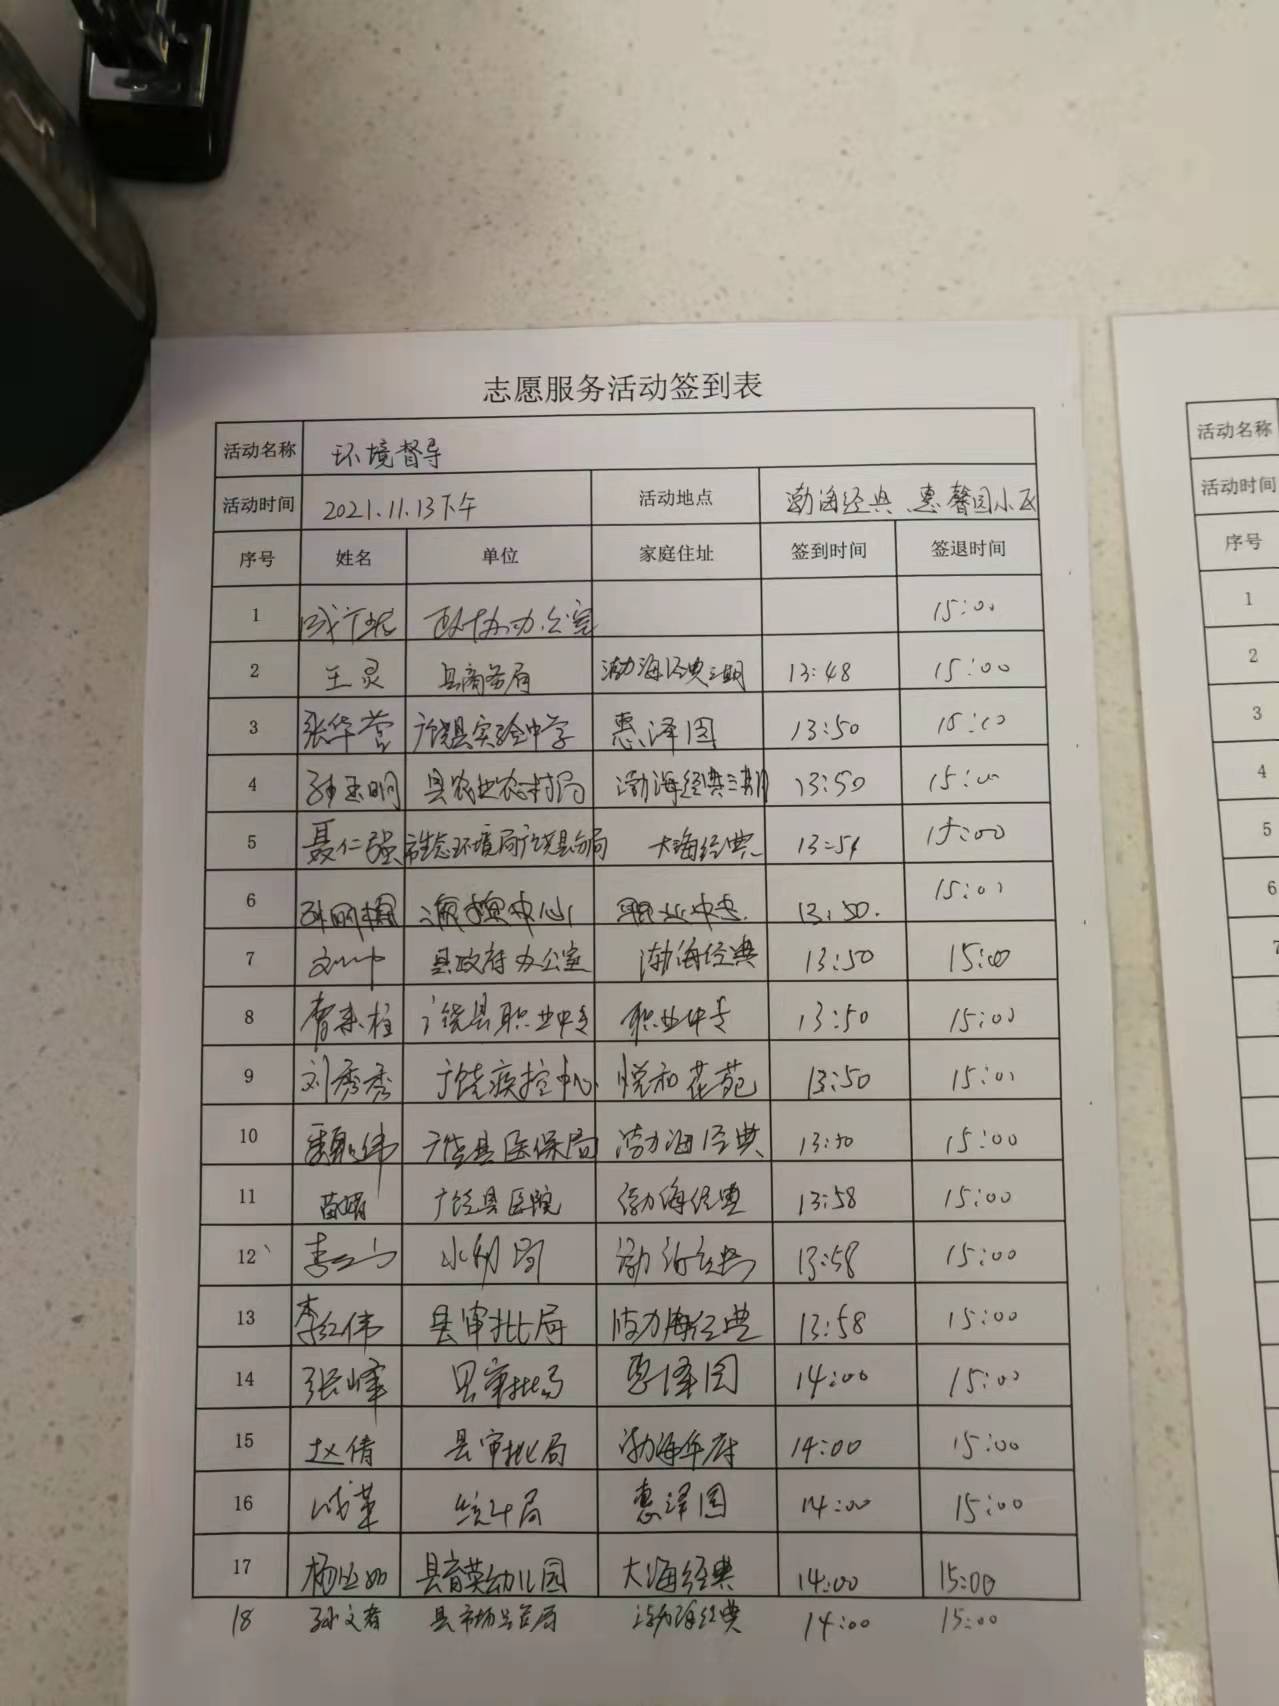 志愿服务活动签到表
活动名称 环境督导
活动时间 2021.11.13下午 活动地点 渤海经典 惠馨园小区
序号 姓名 单位 家庭住址 签到时间 签退时间
1 政协办公室 15:00
2 王灵 县商务局 渤海经典三期 13:48 15:00
3 张华营 广饶县实验中学 惠泽园 13:50 15:00
4 孙玉明 县农业农村局 渤海经典三期 13:50 15:00
5 聂仁强 市生态环境局广饶县分局 大海经典 13:54 15:00
6 中心 职业中专 13:50. 15:00
7 县政府办公室 渤海经典 13:50 15:00
8 广饶县职业中专 职业中专 13:50 15:00
9 刘秀秀 广饶疾控中心 悦和花苑 13:50 15:00
10 广饶县医保局 渤海经典 13:50 15:00
11 苗娟 广饶县医院 渤海经典 13:58 15:00
12 李 水利局 渤海经典 13:58 15:00
13 李红伟 县审批局 渤海经典 13:58 15:00
14 张峰 县审批局 惠泽园 14:00 15:00
15 赵倩 县审批局 渤海华府 14:00 15:00
16 统计局 惠泽园 14:00 15:00
17 杨 县育英幼儿园 大海经典 14:00 15:00
18 孙文 县市场监管局 渤海经典 14:00 15:00
活动名称
活动时间
序号
1
2
3
4
5
6
7